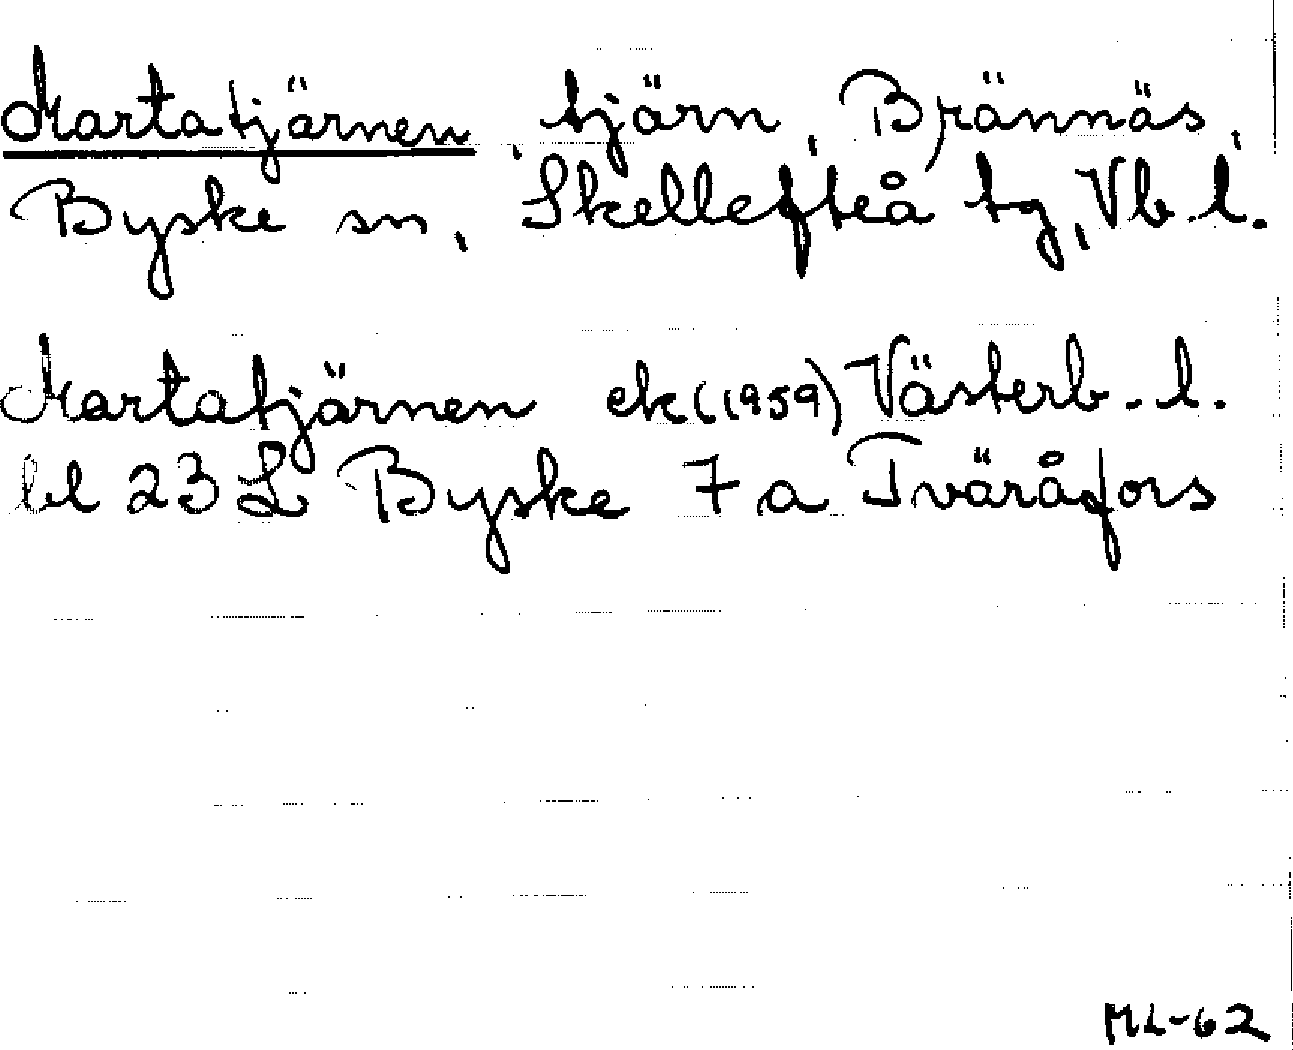 Martatjärnen, tjärn, Brännäs,
Byske sn, Skellefteå tg, Vb. l.
Martatjärnen ek (1959) Västerb. l.
bl 23 L Byske 7 a Tväråfors
ML-62